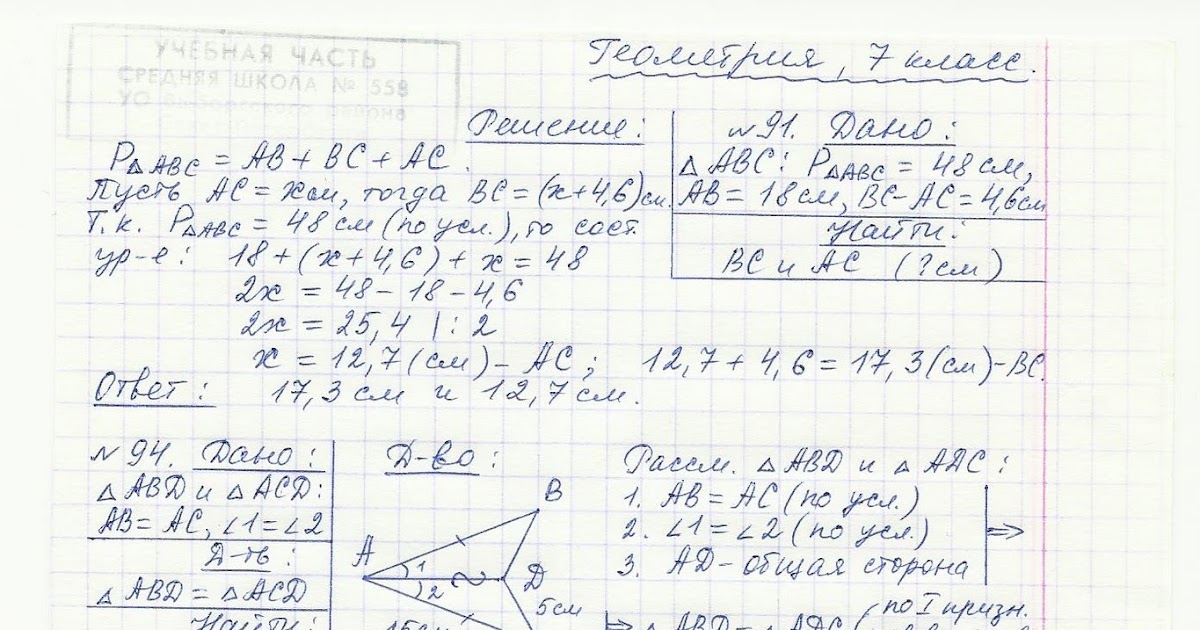 УЧЕБНАЯ ЧАСТЬ
СРЕДНЯЯ ШКОЛА № 558
УО Выборгского района
Геометрия, 7 класс.
Решение:
P△ABC = AB + BC + AC.
Пусть AC = x см, тогда BC = (x+4,6) см.
Т.к. P△ABC = 48 см (по усл.), то сост.
ур-е: 18 + (x+4,6) + x = 48
2x = 48 - 18 - 4,6
2x = 25,4 | : 2
x = 12,7 (см) - AC; 12,7 + 4,6 = 17,3 (см) - BC.
Ответ: 17,3 см и 12,7 см.
№ 91. Дано:
△ ABC: P△ABC = 48 см,
AB = 18 см, BC - AC = 4,6 см
Найти:
BC и AC (? см)
№ 94. Дано:
△ ABD и △ ACD:
AB = AC, ∠1 = ∠2
Д-ть:
△ ABD = △ ACD
Найти:
Д-во:
B
A
1
2
D
5 см
15 см
Рассм. △ ABD и △ ADC:
1. AB = AC (по усл.)
2. ∠1 = ∠2 (по усл.)
3. AD - общая сторона
⇒
⇒ △ ABD = △ ADC (по I призн.